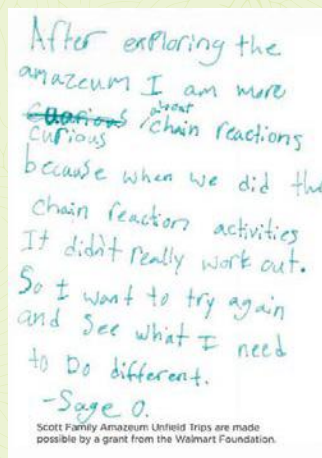 After exploring the
amazeum I am more
curious about chain reactions
because when we did the
chain reaction activities
It didn't really work out.
So I want to try again
and see what I need
to Do different.
-Sage O.
Scott Family Amazeum Unfield Trips are made
possible by a grant from the Walmart Foundation.